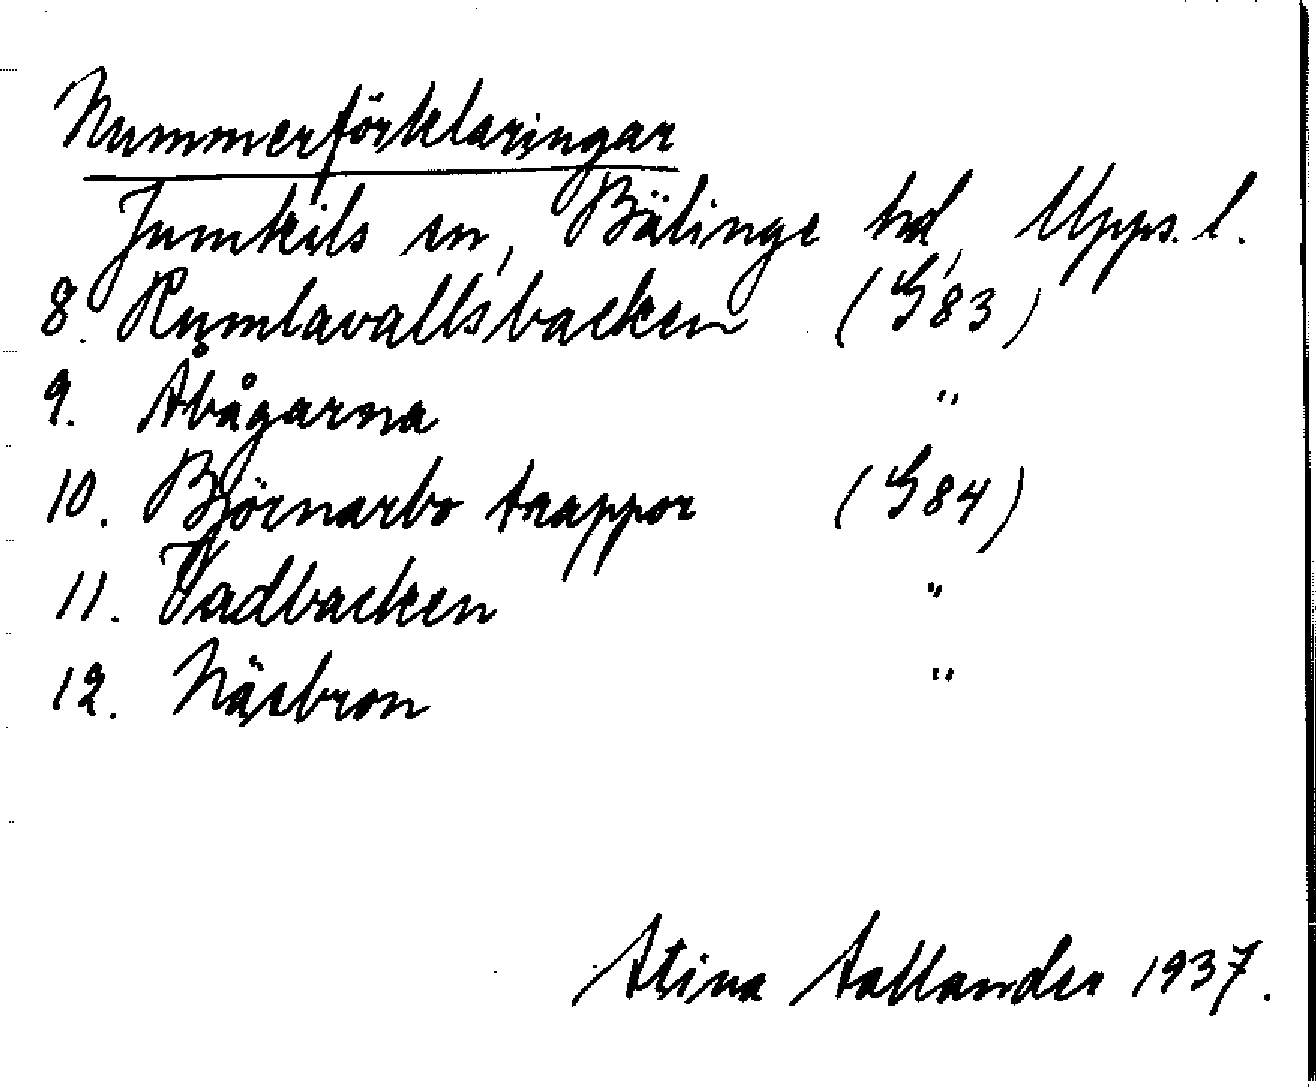 Nummerförklaringar
Jumkils sn, Bälinge hd, Upps. l.
8. Humlavallsbacken (G83)
9. Åbågarna "
10. Björnarbo trappor (G84)
11. Vadbacken "
12. Näsbron "
Stina Sallander 1937.